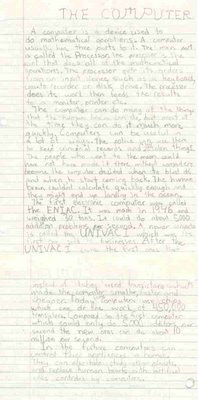 THE COMPUTER
A computer is a device used to
do mathematical operations. A computer
usually has three parts to it. The main part
is called the Processor. The processor is the
part that does all of the mathematical
equations. The processor gets its orders
from an input device, such as a keyboard,
cassette recorder or disk drive. The processor
does its work then feeds the results
to a monitor, printer etc.
The computer can do many of the things
that the human brain can do, but most of
the time they can do it much more
quickly. Computers can be useful in
a lot of ways. The police can use them
to keep criminal records and similar things.
The people who went to the moon could
not have made it there without computers
because the computer decided when to blast off
and when to start coming back. The human
brain couldn't calculate quickly enough and
they might end up landing in the ocean.
The first electronic computer was called
the ENIAC. It was made in 1946 and
weighed 30 tons. It could do about 5,000
addition problems per second. A newer computer
was called the UNIVAC I which was the
first one sold to businesses. After the
UNIVAC I came the first ones that
instead of tubes used transistors which
made the computer smaller, faster and
cheaper. Today computers use chips
which can do the work of
transistors. Compared to the first computer
which could only do 5,000 additions per
second the newer ones can do about 10
million per second.
In the future computers
control
They can also help study
and replace human hearts with artificial
ones controlled by computers.